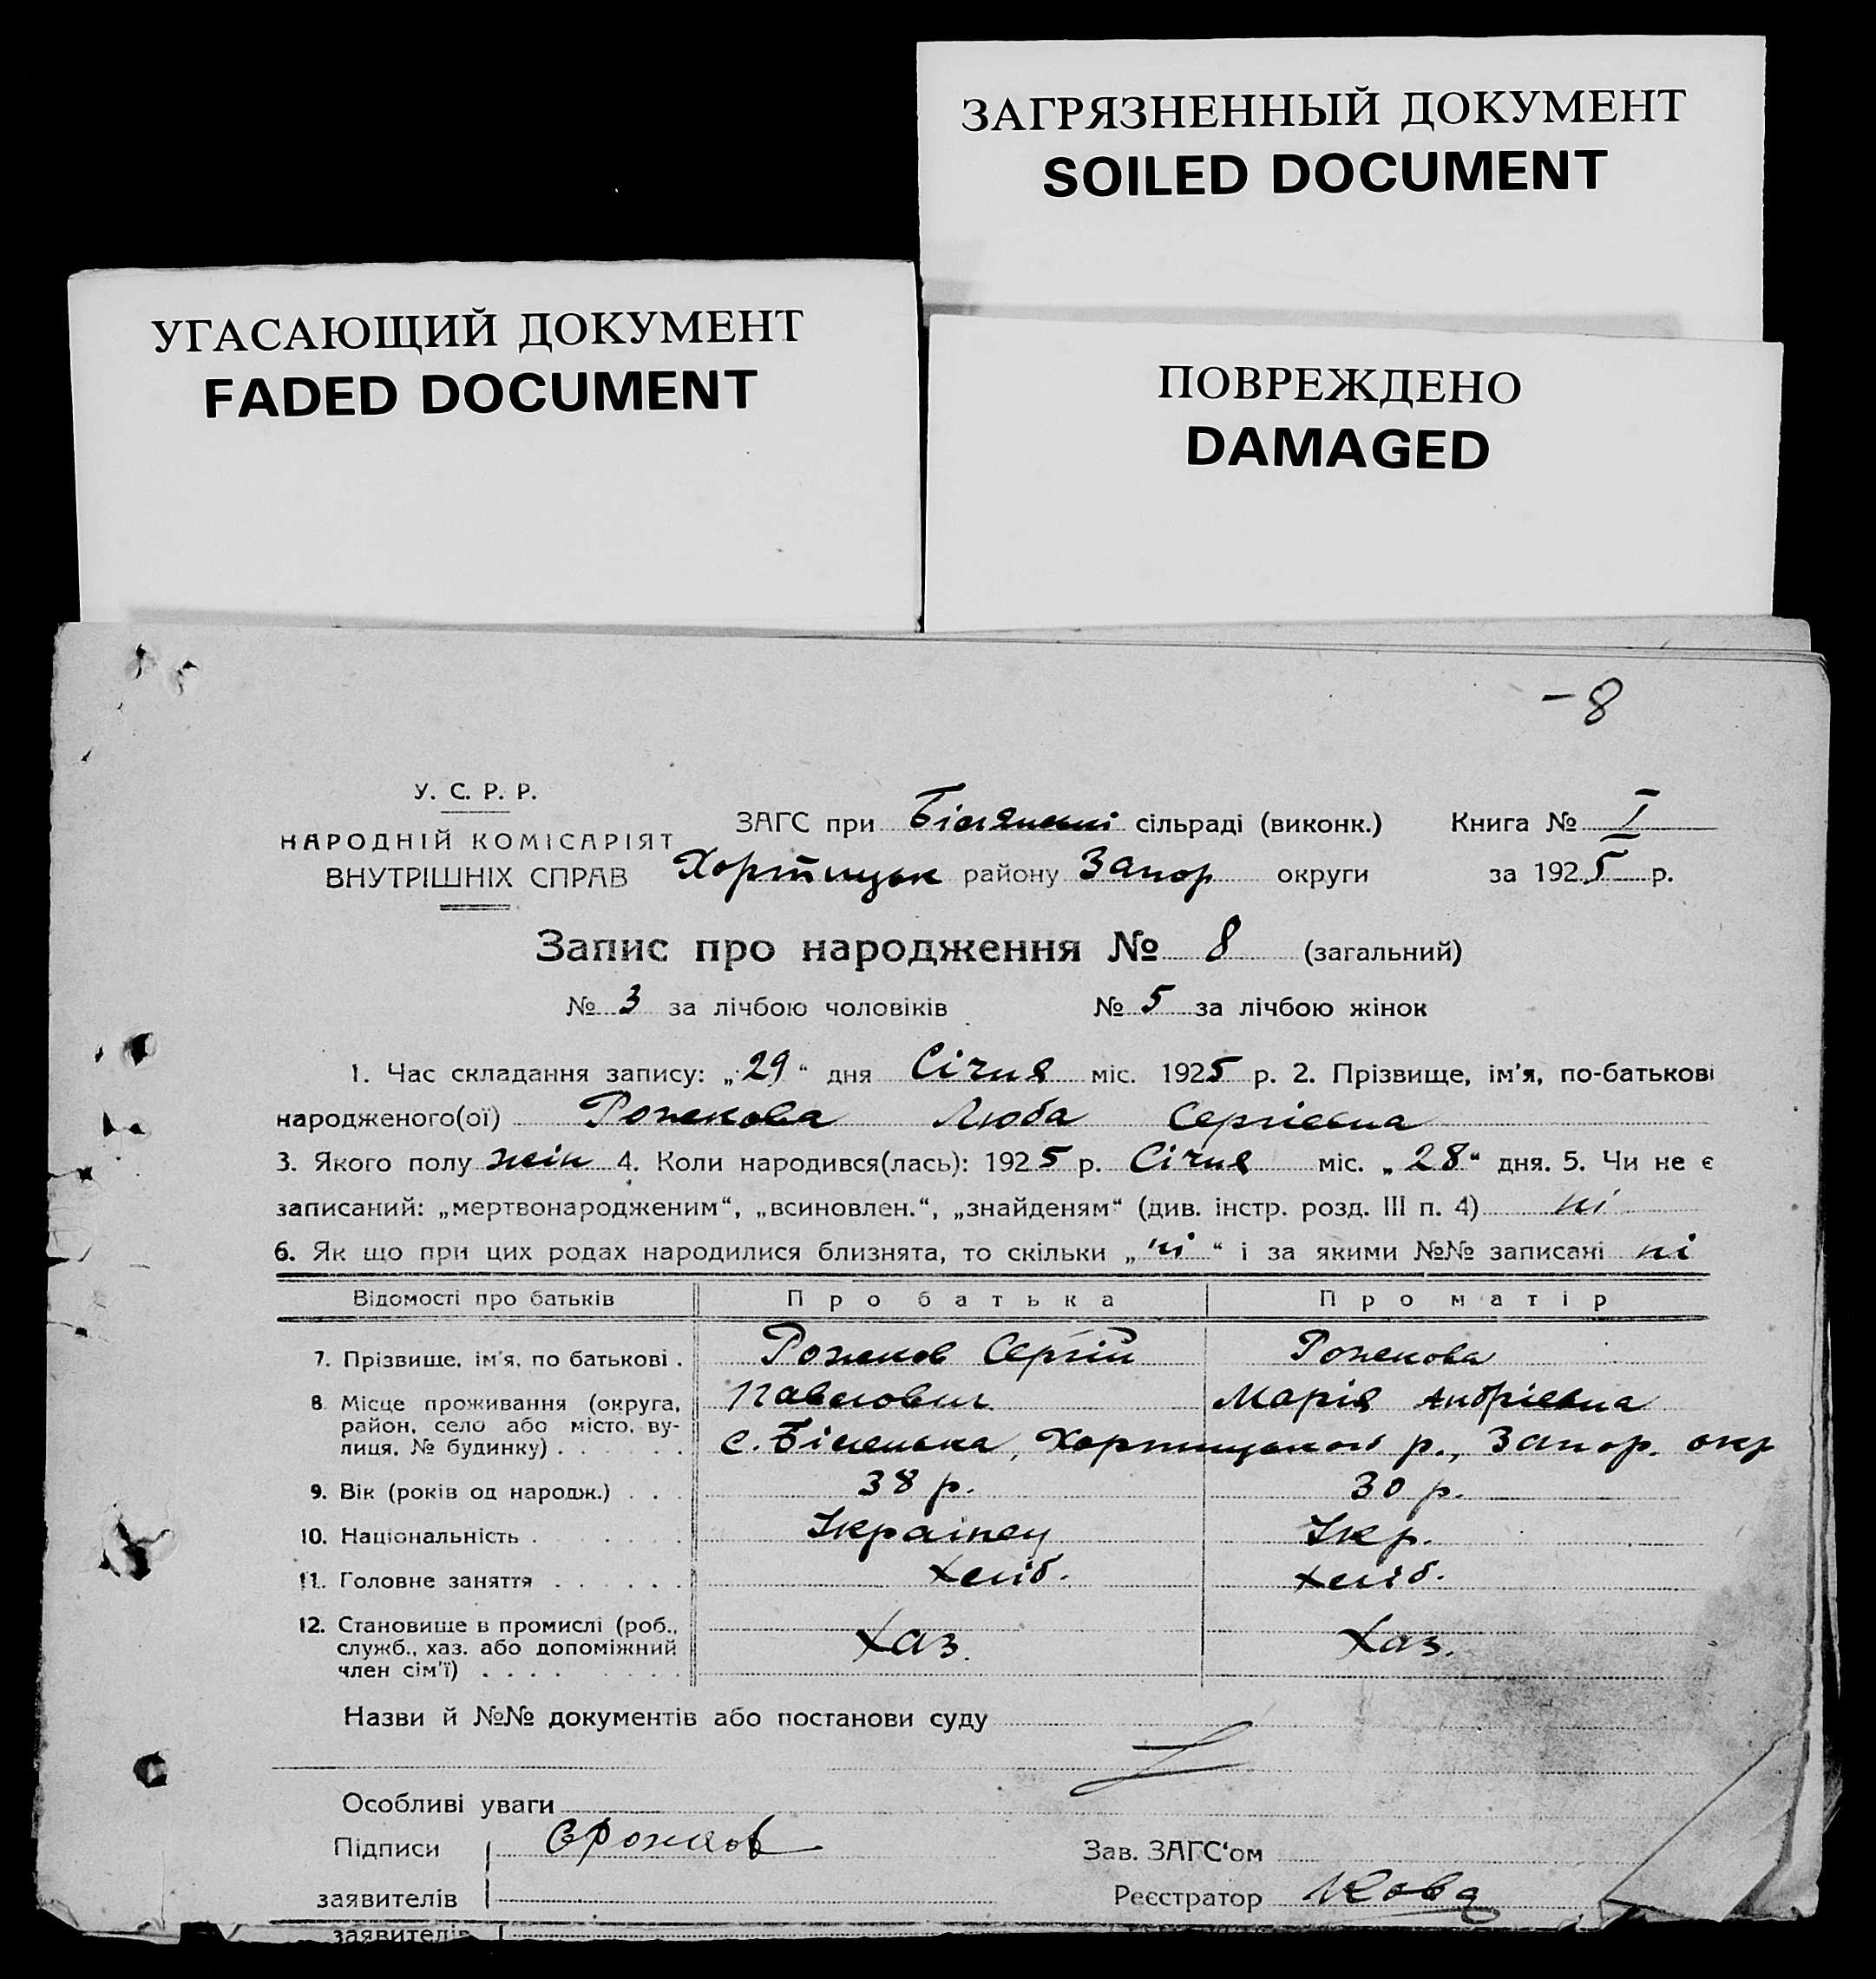 ЗАГРЯЗНЕННЫЙ ДОКУМЕНТ
SOILED DOCUMENT
УГАСАЮЩИЙ ДОКУМЕНТ
FADED DOCUMENT
ПОВРЕЖДЕНО
DAMAGED
-8
У. С. Р. Р.
НАРОДНІЙ КОМІСАРІЯТ
ВНУТРІШНІХ СПРАВ
ЗАГС при Білянські сільраді (виконк.) Книга № I
Хортицьк району Запор округи за 1925 р.
Запис про народження № 8 (загальний)
№ 3 за лічбою чоловіків № 5 за лічбою жінок
1. Час складання запису: „29“ дня Січня міс. 1925 р. 2. Прізвище, ім'я, по-батькові
народженого(ої) Роженкова Люба Сергіевна
3. Якого полу жін 4. Коли народився(лась): 1925 р. Січня міс. „28“ дня. 5. Чи не є
записаний: „мертвонародженим“, „всиновлен.“, „знайденям“ (див. інстр. розд. III п. 4) ні
6. Як що при цих родах народилися близнята, то скільки „ні“ і за якими №№ записані ні
Відомості про батьків Про батька Про матір
7. Прізвище, ім'я, по батькові . Роженков Сергій Роженкова
8. Місце проживання (округа, Павлович Марія Андріевна
район, село або місто, ву-
лиця, № будинку) . . . . . . с. Біленька, Хортицького р., Запор. окр
9. Вік (років од народж.) . . . 38 р. 30 р.
10. Національність . . . . . . Українец Укр.
11. Головне заняття . . . . . . хліб. хліб.
12. Становище в промислі (роб.,
служб., хаз. або допоміжний Хаз. Хаз.
член сім'ї) . . . .
Назви й №№ документів або постанови суду
Особливі уваги
Підписи Зав. ЗАГС'ом
заявителів Реєстратор
заявителів